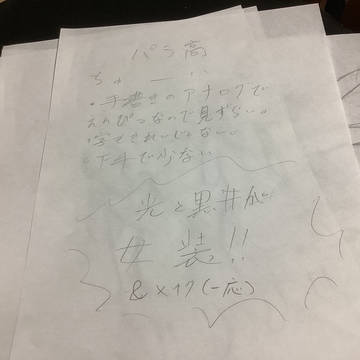 パラ高
ちゅーい
・手書きのアナログで
えんぴつなので見ずらい。
・字きれいじゃない。
・下手で少ない
光と黒井が
女装!!
&メイク(一応)